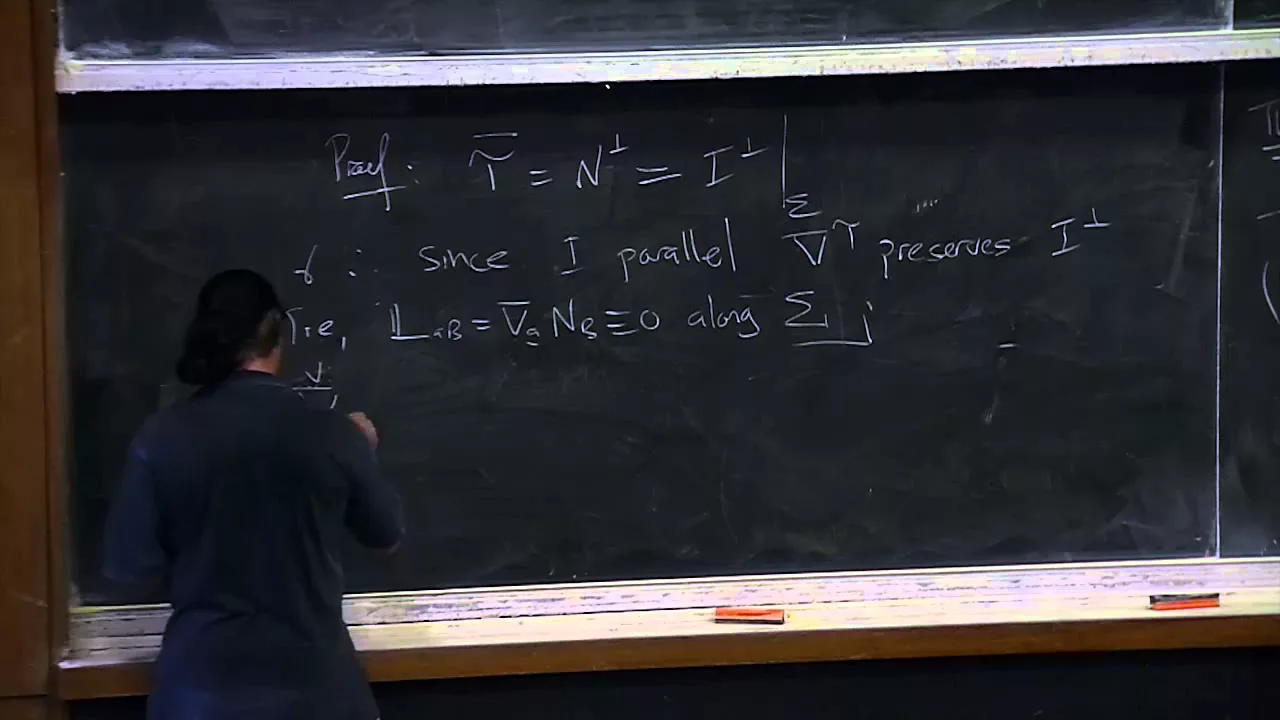 Proof: \overline{\mathcal{T}} = N^⊥ = I^⊥ |_Σ
& ∴ since I parallel \overline{∇}^{\mathcal{T}} preserves I^⊥
I.e., 𝕃_{aB} = \overline{∇}_a N_B ≡ 0 along Σ